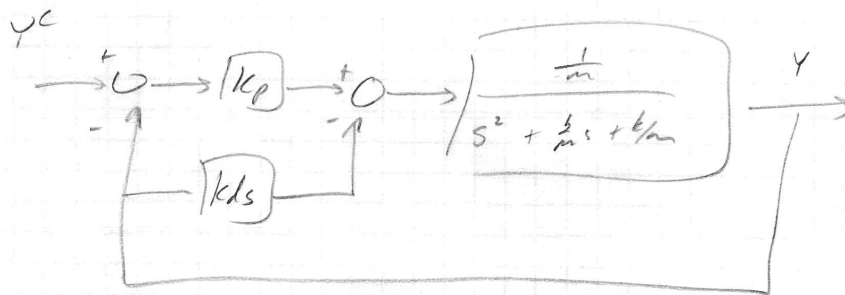 Y^c
+ - kp + - 1/m Y
s² + b/m s + k/m
kds